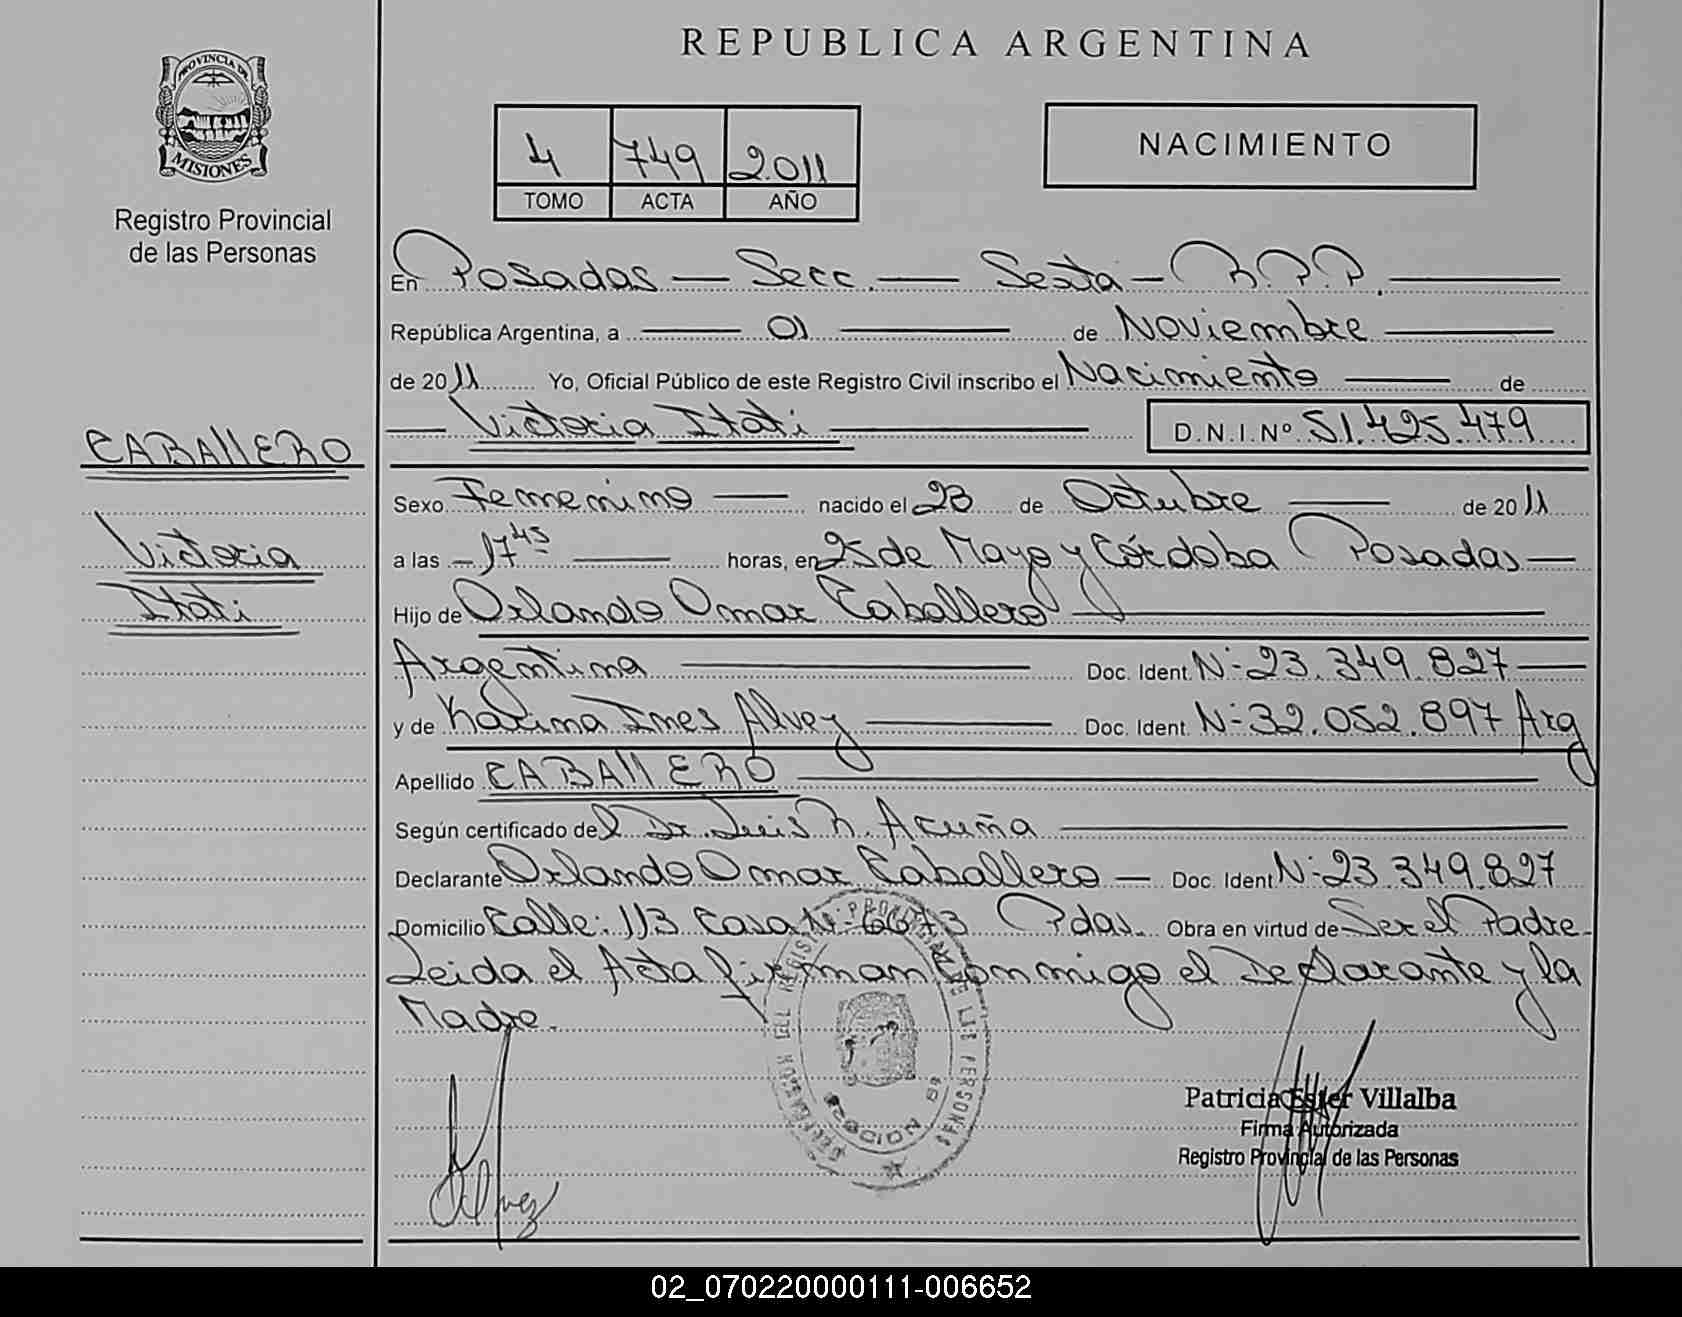 REPUBLICA ARGENTINA
PROVINCIA DE
MISIONES
Registro Provincial
de las Personas
4 749 2.011
TOMO ACTA AÑO
NACIMIENTO
En Posadas — Secc. — Sexta — R.P.P. —
República Argentina, a — 01 — de Noviembre —
de 2011 Yo, Oficial Público de este Registro Civil inscribo el Nacimiento — de
— Victoria Itati — D.N.I.Nº 51.425.479
CABAllERO
Victoria
Itati
Sexo Femenino — nacido el 23 de Octubre — de 2011
a las — 17 45 — horas, en 25 de Mayo y Córdoba Posadas —
Hijo de Orlando Omar Caballero —
Argentina — Doc. Ident. Nº 23.349.827 —
y de Karina Ines Alvez — Doc. Ident. Nº 32.052.897 Arg
Apellido CABAllERO —
Según certificado del Dr. Luis R. Acuña —
Declarante Orlando Omar Caballero — Doc. Ident. Nº 23.349.827
Domicilio Calle: 113 Casa Nº 6673 Pdas. Obra en virtud de Ser el Padre.
Leida el Acta firman conmigo el Declarante y la
Madre.
Alvez
Patricia Ester Villalba
Firma Autorizada
Registro Provincial de las Personas
02_070220000111-006652